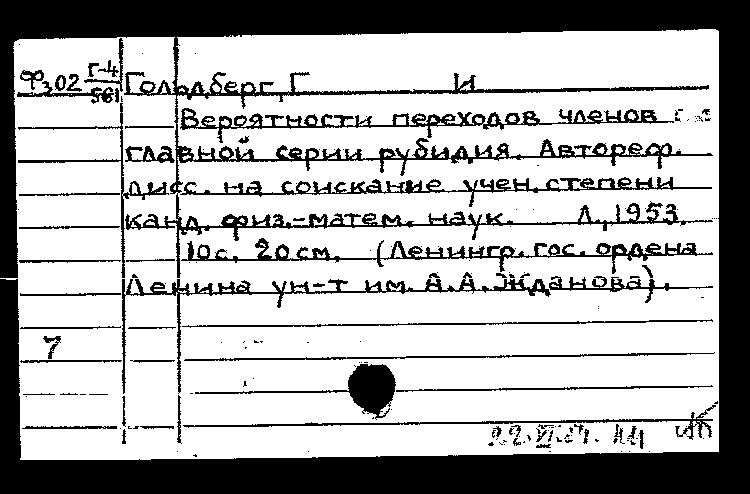 Ф302 Г-4/561 Гольдберг, Г И
Вероятности переходов членов
главной серии рубидия. Автореф.
дисс. на соискание учен. степени
канд. физ.-матем. наук. Л., 1953.
10с. 20см. (Ленингр. гос. ордена
Ленина ун-т им. А.А. Жданова).
7